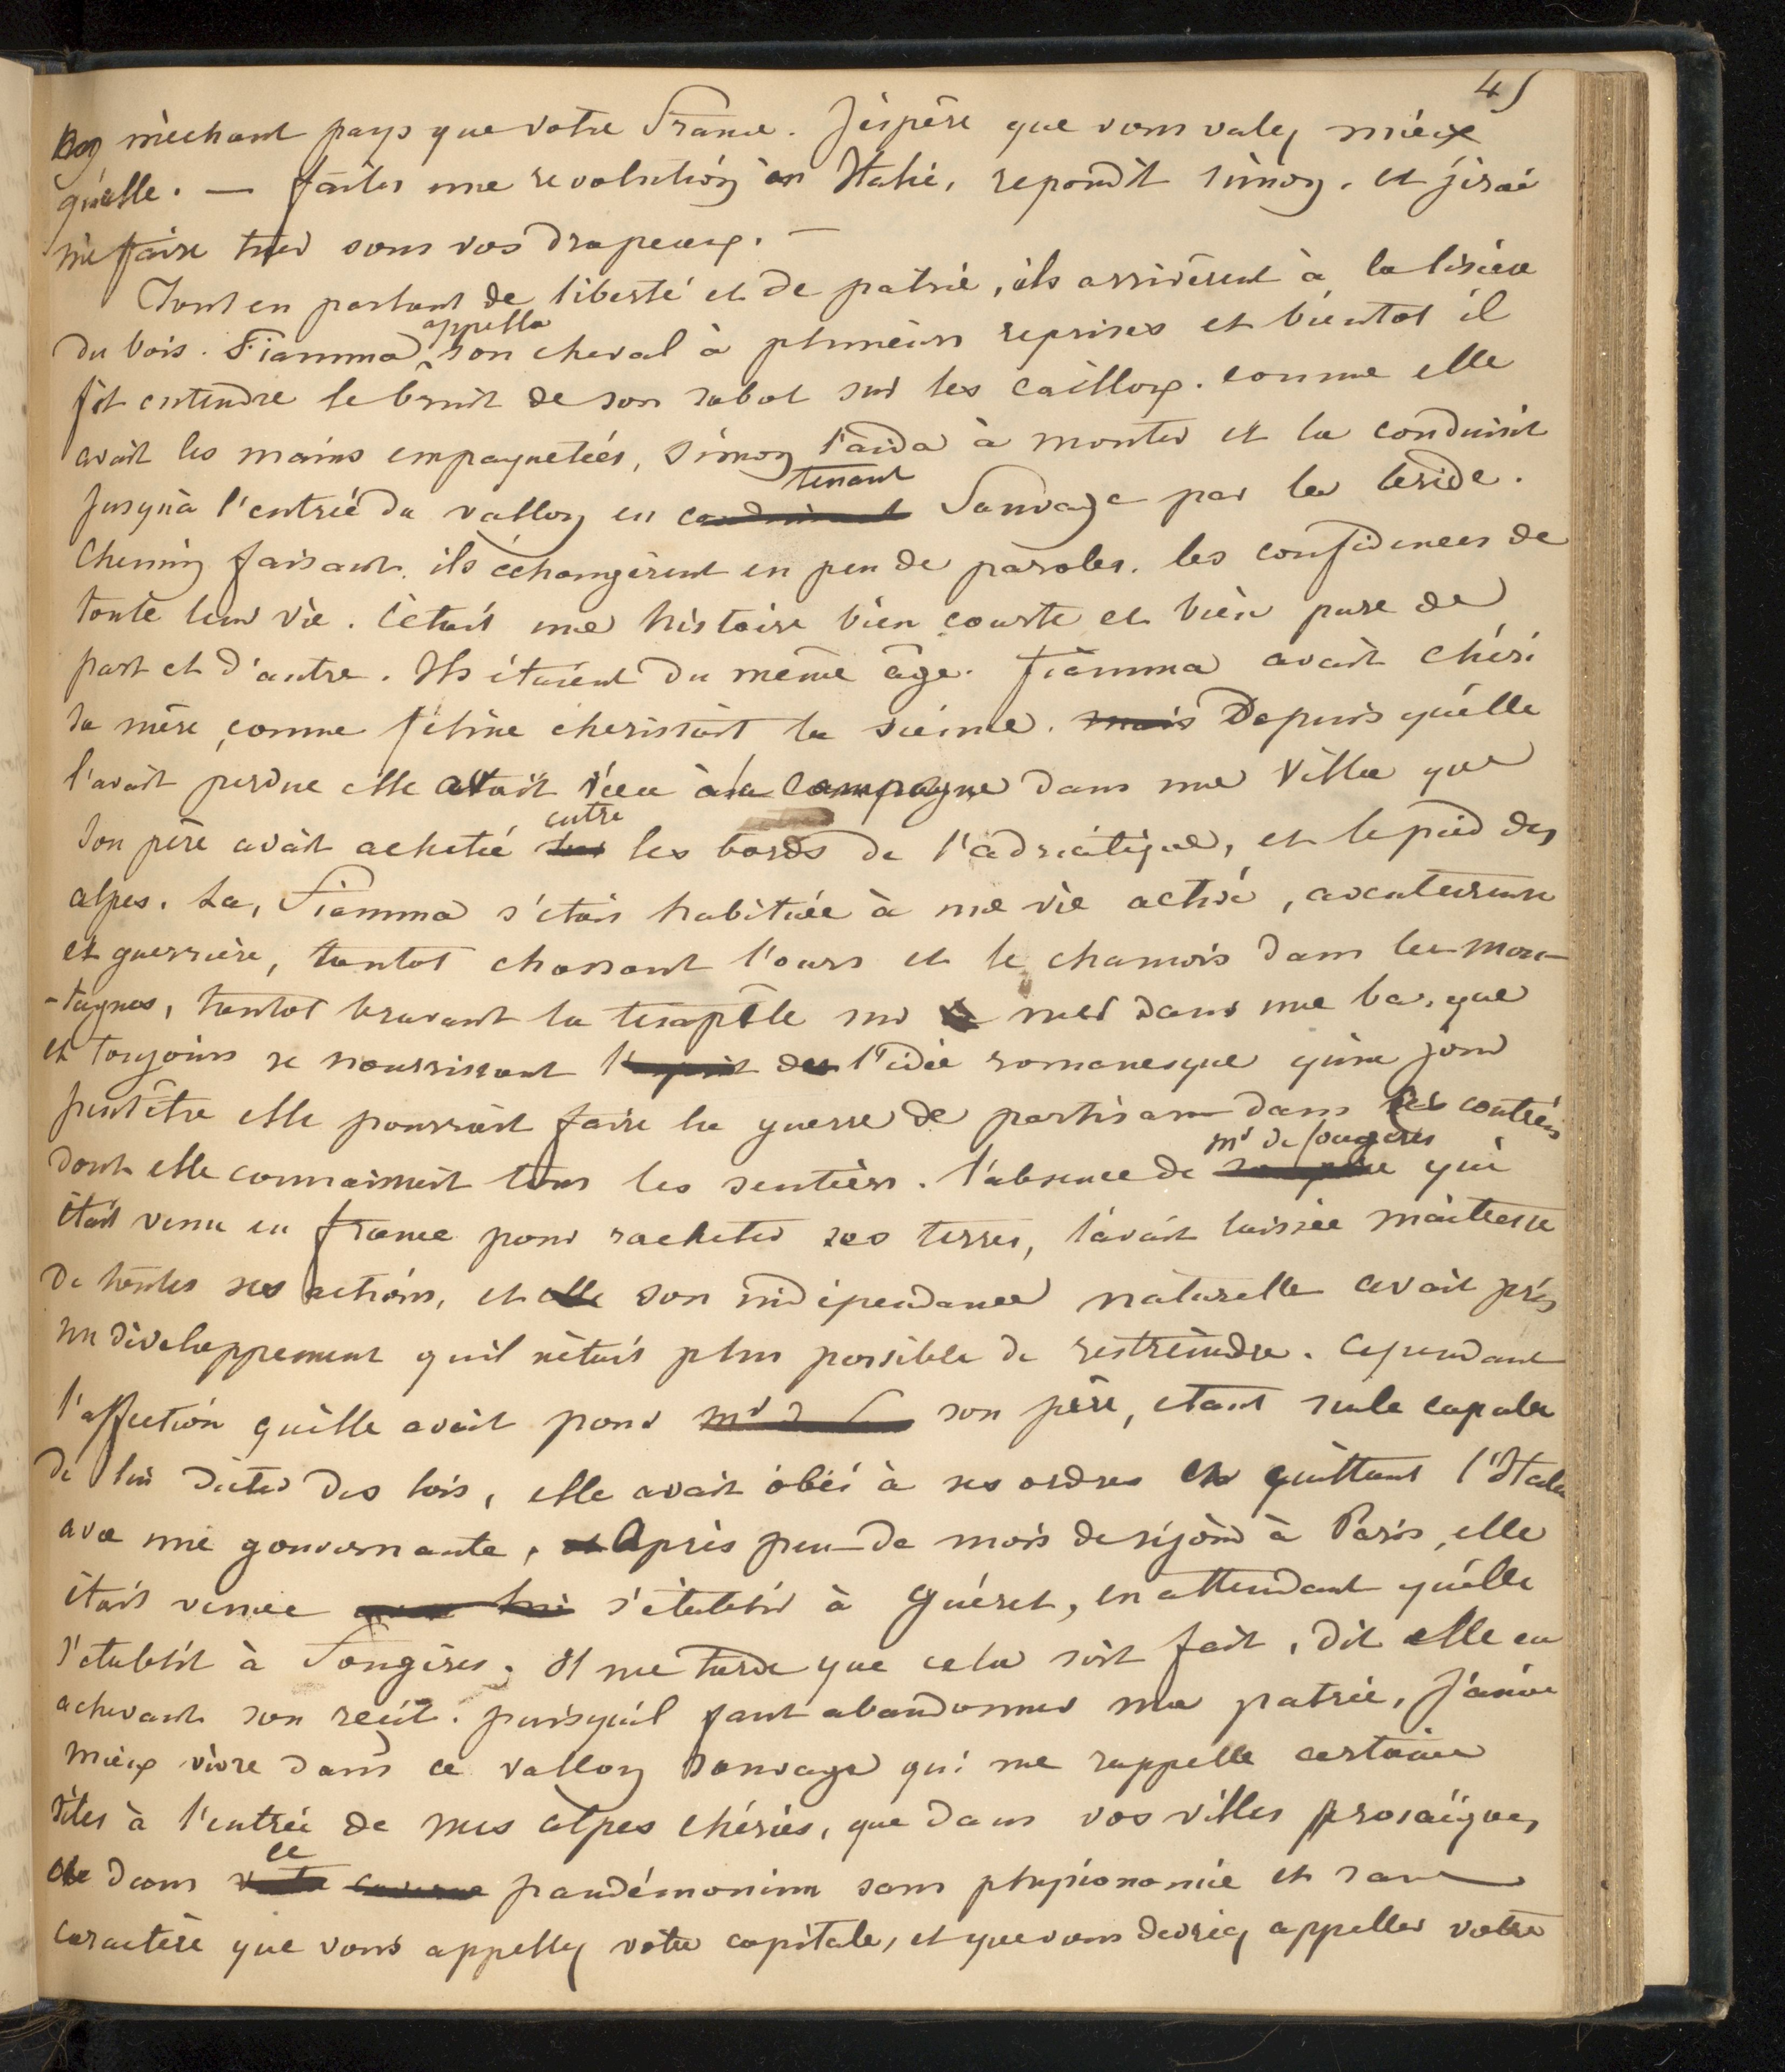 45
méchant pays que votre France. J'éspère que vous valez mieux
qu'elle. — faites une revolution en Italie, repondit simon, et j'irai
me faire tuer sous vos drapeaux. —
Tout en parlant de liberté et de patrie, ils arrivèrent à la lisière
du bois. Fiamma appella son cheval à plusieurs reprises et bientot il
fit entendre le bruit de son sabot sur les cailloux. comme elle
avait les mains empaquetées, Simon l'aida à monter et la conduisit
jusqu'à l'entrée du vallon en conduisant tenant Sauvage par la bride.
Chemin faisant, ils échangèrent en peu de paroles, les confidences de
toute leur vie. C'était une histoire bien courte et bien pure de
part et d'autre. Ils étaient du même âge. fiamma avait chéri
sa mère comme féline cherissait la sienne. mais Depuis qu'elle
l'avait perdue elle avait vécu à la campagne dans une villa que
son père avait achetée sur entre les bords de l'adriatique, et le pied des
alpes. La, Fiamma s'était habituée à une vie active, aventureuse
et guerrière, tantot chassant l'ours et le chamois dans les mon-
-tagnes, tantot bravant la tempête sur mer dans une barque
et toujours se nourrissant l'esprit de l'idée romanesque qu'un jour
peut être elle pourrait faire la guerre de partisan dans ses contrées
dont elle connaissait tous les sentiers. l'absence de son père mr de fougeres qui
était venu en france pour racheter ses terres, l'avait laissée maitresse
de toutes ses actions, et elle son indépendance naturelle avait pris
un développement qu'il n'était plus possible de restreindre. cependant
l'affection qu'elle avait pour mr de son père, étant seule capable
de lui dicter des lois, elle avait obéi à ses ordres en quittant l'Italie
avec une gouvernante, et Après peu de mois de séjour à Paris, elle
était venue avec lui s'établir à Guéret, en attendant qu'elle
s'établit à Fougères. Il me tarde que cela soit fait, dit elle en
achevant son récit. puisqu'il faut abandonner ma patrie, j'aime
mieux vivre dans ce vallon sauvage qui me rappelle certains
sites à l'entrée de mes alpes chéries, que dans vos villes prosaïques
dans votre ce pandémonium sans physionomie et sans
caractère que vous appellez votre capitale, et que vous devriez appeller votre